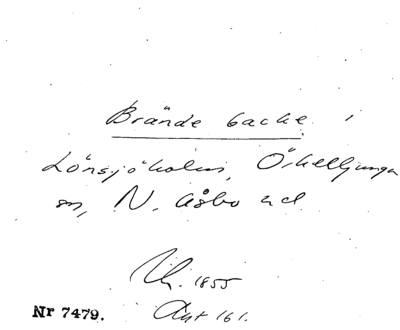 Brände backe i
Lönsjöholm, Örkelljunga
sn, N. Åsbo hd
Uh. 1855
Nr 7479. Ant 161.